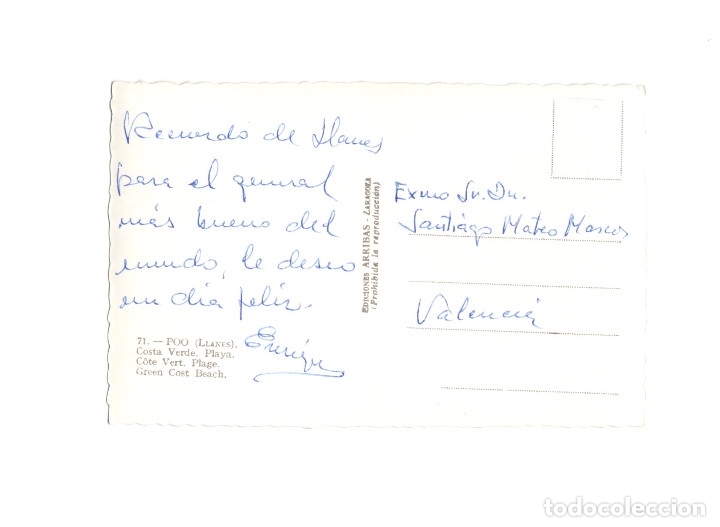 Recuerdo de Llanes
para el general
más bueno del
mundo, le deseo
un día feliz.
Enrique
71. — POO (LLANES).
Costa Verde. Playa.
Côte Vert. Plage.
Green Cost Beach.
EDICIONES ARRIBAS - ZARAGOZA
(Prohibida la reproducción)
Exmo Sr. Dn.
Santiago Mateo Marcos
Valencia
todocoleccion